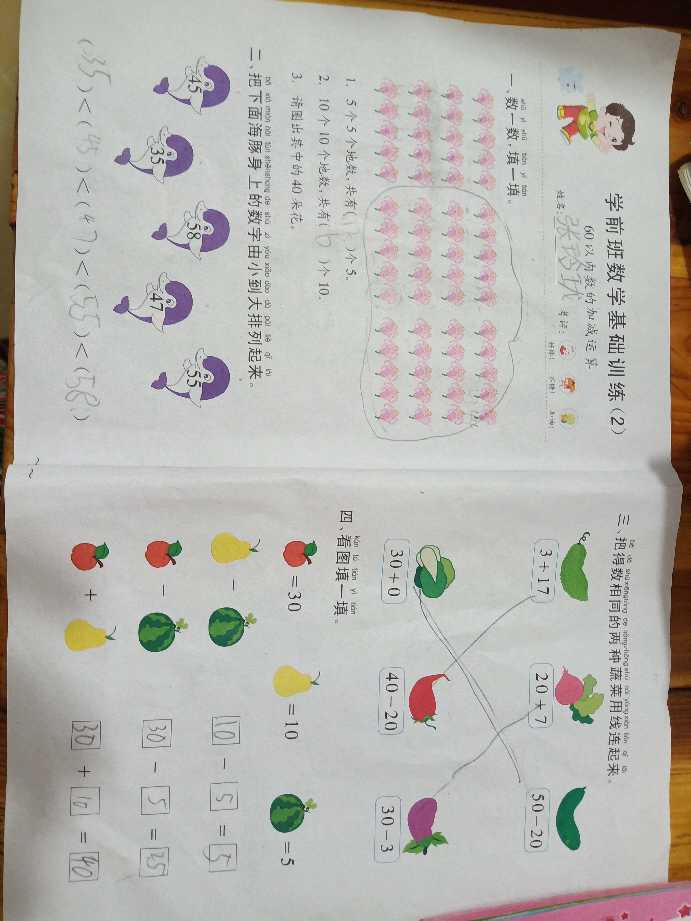 学前班数学基础训练(2)
60以内数的加减运算
姓名:
考评:
shǔ yì shǔ tián yì tián
一、数一数,填一填。
1. 5个5个地数,共有( )个5。
2. 10个10个地数,共有( )个10。
3. 请圈出其中的40朵花。
二、把下面海豚身上的数字由小到大排列起来。
45 35 58 47 55
(35)<(45)<(47)<(55)<(58)
三、把得数相同的两种蔬菜用线连起来。
3+17 20+7 50-20
30+0 40-20 30-3
kàn tú tián yì tián
四、看图填一填。
=30 =10 =5
- 10 - 5 = 5
- 30 - 5 = 25
+ 30 + 10 = 40